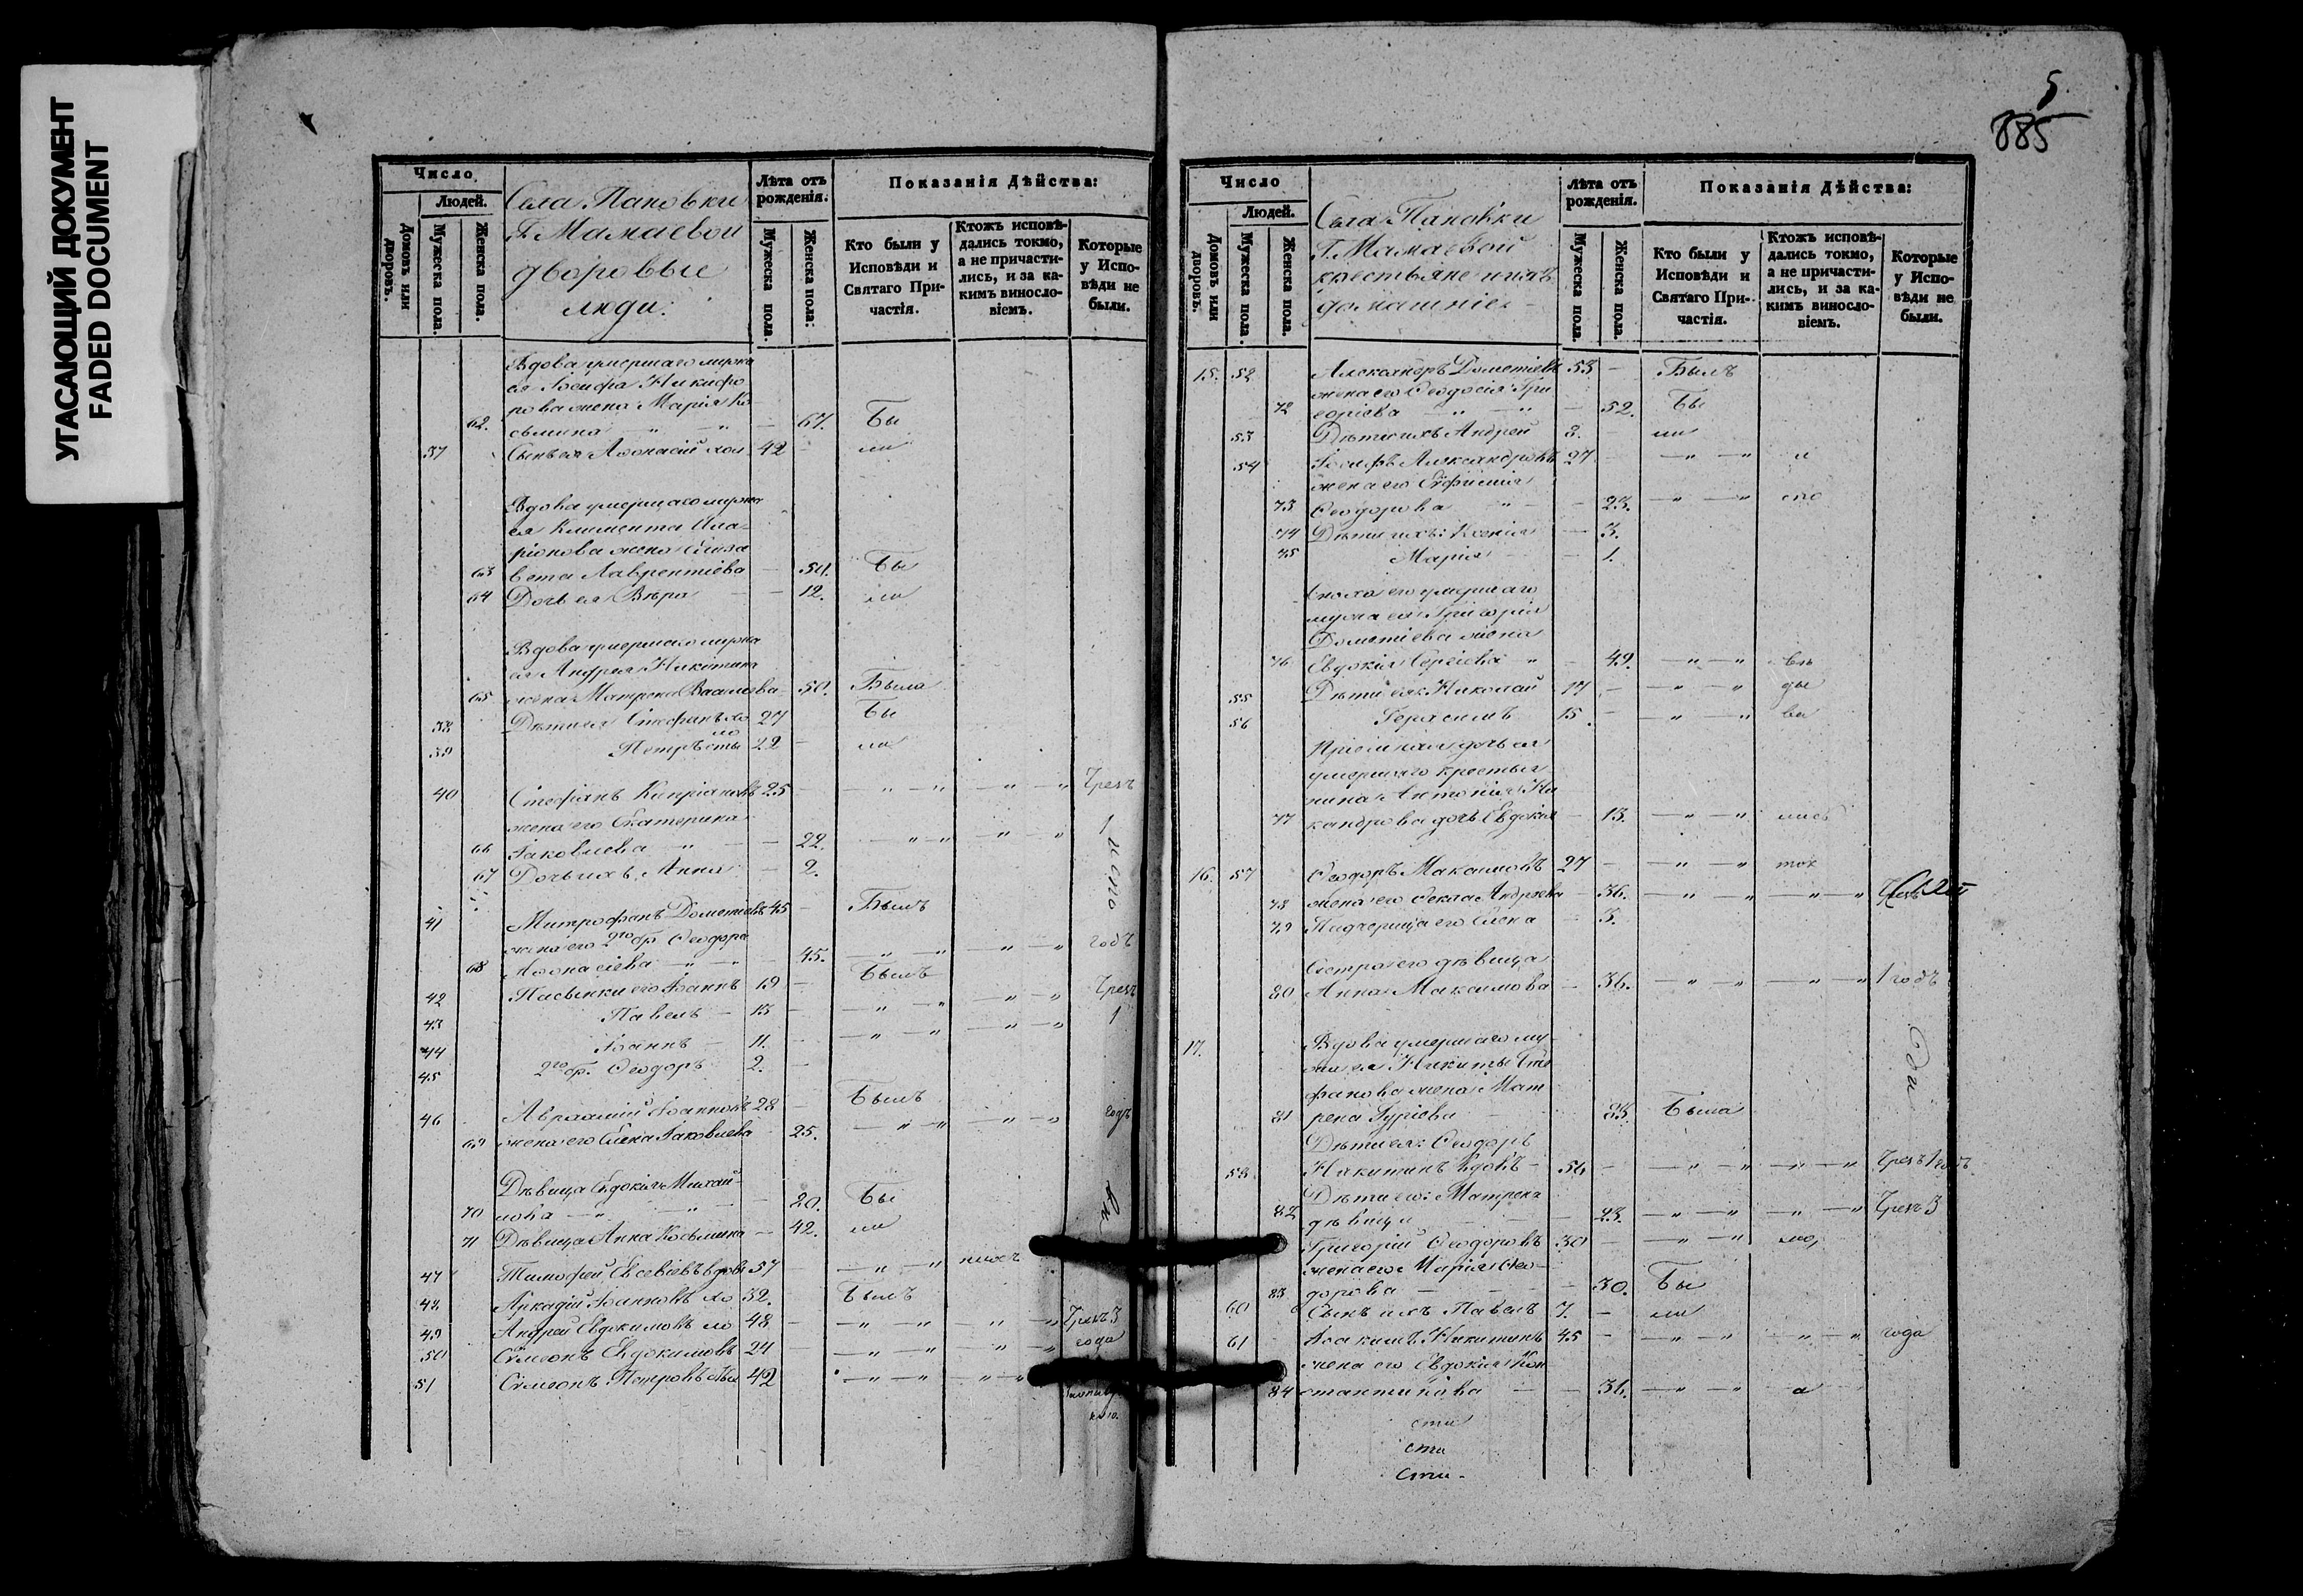 УГАСАЮЩИЙ ДОКУМЕНТ
FADED DOCUMENT
Число
Людей.
Домовъ или дворовъ.
Мужеска пола.
Женска пола.
Села Пановки
Г. Мамаевой
дворовые
люди.
Лѣта отъ рожденія.
Мужеска пола.
Женска пола:
Показанія Дѣйства:
Кто были у Исповѣди и Святаго Причастія.
Ктожъ исповѣдались токмо, а не причастились, и за какимъ винословіемъ.
Которые у Исповѣди не были.
Вдова умершаго мужа
ея Іосифа Никифо
рова жена Марія Ко
62. сьмина 67. Бы
37 Сынъ ея Аѳонасій хол 42 ли
Вдова умершаго мужа
ея Климента Ила-
ріонова жена Елиза
63 вета Лаврентіева 50. Бы
64 Дочь ея Вѣра 12. ли
Вдова умершаго мужа
ея Андрея Никитина
65 жена Матрона Васильева 50. Была
38 Дѣти ея Стефанъ хо 27 Бы
39 Петръ 22 ли
40 Стефанъ Кипріановъ 25 Чрезъ
жена его Екатерина
66 Іаковлева 22. 1
67 Дочь ихъ Анна 2.
41 Митрофанъ Дометіевъ 45 Былъ
жена его 2го бр. Ѳеодора
68 Аѳонасіева 45. годъ
42 Пасынки его Іоаннъ 19 Былъ
43 Павелъ 13 Чрезъ
44 Іоаннъ 11. 1
45 2го бр. Ѳеодоръ 2.
46 Авраамій Іоанновъ 28 Былъ
69 жена его Елена Іаковлева 25. годъ
Дѣвица Евдокія Михай-
70 лова 20. Бы
71 Дѣвица Анна Косьмина 42. ли
47 Тимофей Евсевіевъ вдовъ 57
48 Аркадій Іоанновъ хо 32. Былъ
49 Андрей Евдокимовъ хо 48 Чрезъ 3
50 Сѵмеонъ Евдокимовъ 24 года
51 Сѵмеонъ Петровъ 42
5
885
Число
Людей.
Домовъ или дворовъ.
Мужеска пола.
Женска пола.
Села Пановки
Г. Мамаевой
крестьяне и ихъ
домашніе.
Лѣта отъ рожденія.
Мужеска пола.
Женска пола.
Показанія Дѣйства:
Кто были у Исповѣди и Святаго Причастія.
Ктожъ исповѣдались токмо, а не причастились, и за какимъ винословіемъ.
Которые у Исповѣди не были.
15. 52 Александръ Дометіевъ 53 Былъ
жена его Ѳеодосія Гри
72 горіева 52. Бы
53 Дѣти ихъ Андрей 8. ли
54 Іосифъ Александровъ 27 и
жена его Евфимія
73 Ѳеодорова 23.
74 Дѣти ихъ: Ксенія 3.
75 Марія 1.
Сноха его умершаго
мужа ея Григорія
Дометіева жена
76 Евдокія Сергіева 49.
55 Дѣти ея: Николай 17
56 Герасимъ 15
Пріемная дочь ея
умершаго крестья
нина Антонія Ни
77 кандрова дочь Евдокія 13.
16. 57 Ѳеодоръ Максимовъ 27
78 жена его Ѳекла Андреева 36.
79 Падчерица его Елена 5.
Сестра его дѣвица
80 Анна Максимова 36. 1 годъ
17. Вдова умершаго му-
жа ея Никиты Сте
фанова жена Мат
81 рена Гуріева 83. Была
Дѣти ея: Ѳеодоръ
58 Никитинъ вдовъ 56 Чрезъ 1 годъ
Дѣти его: Матрена
82 дѣвица 23. Чрезъ 3
Григорій Ѳеодоровъ 30
жена его Марія Ѳео-
83 дорова 30. Бы
60 Сынъ ихъ Павелъ 7. ли
61 Іоакимъ Никитинъ 45 года
жена его Евдокія Кон
84 стантинова 36.
сти
сти
Сти.